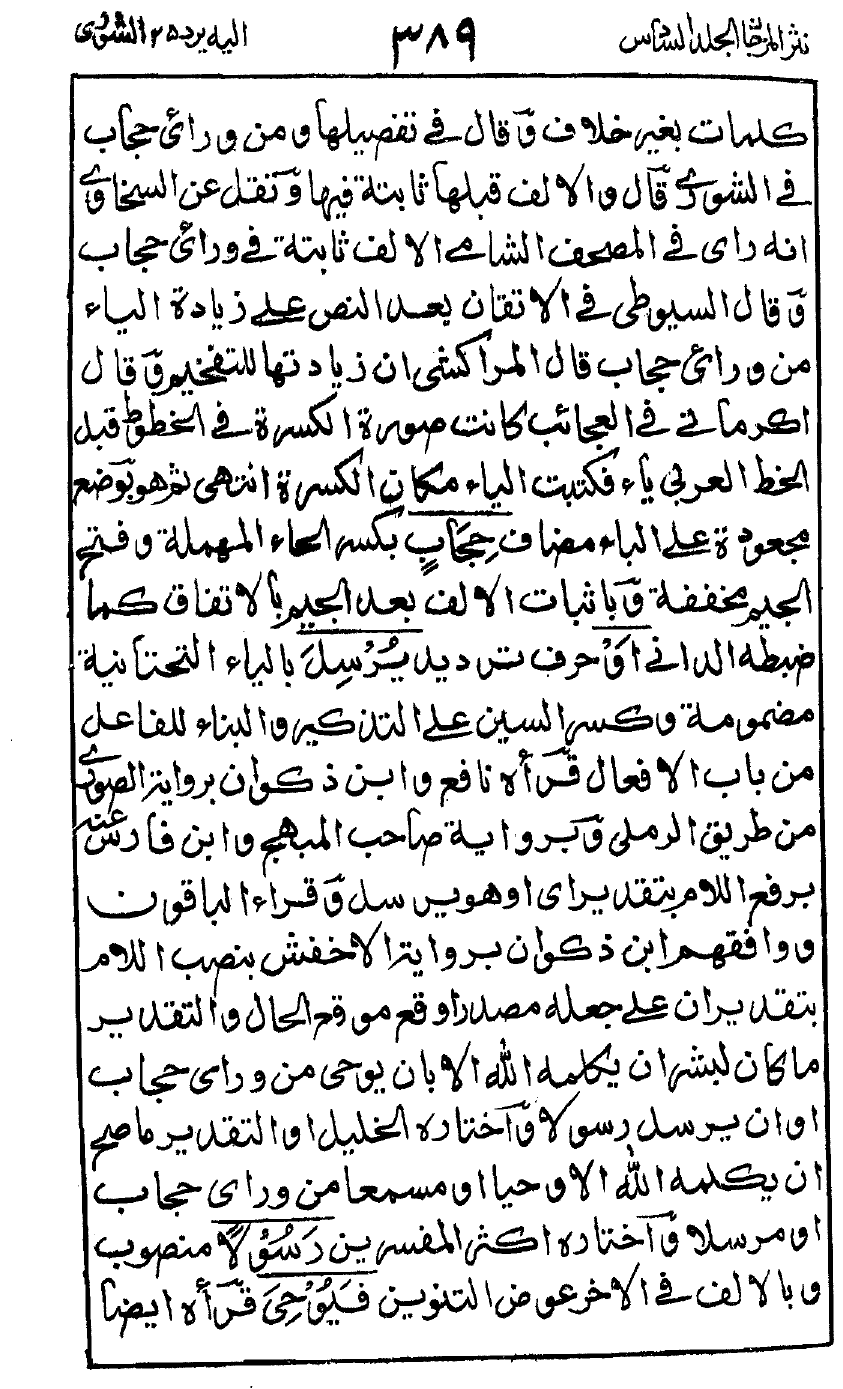 نثر المرجان الجلد السادس ٣٨٩ اليه يرد ٢٥ الشورى
كلمات بغير خلاف وقال فى تفصيلها ومن ورائ حجاب
فى الشورى قال والالف قبلها ثابتة فيها ونقل عن السخاوى
انه راى فى المصحف الشامى الالف ثابتة فى ورائ حجاب
وقال السيوطى فى الاتقان بعد النص على زيادة الياء
من ورائ حجاب قال المراكشى ان زيادتها للتفخيم وقال
اكرمانى فى العجائب كانت صورة الكسرة فى الخطوط قبل
الخط العربى ياء فكتبت الياء مكان الكسرة انتهى ثم هو بوضع
مجعودة على الياء مضاف حِجَابٍ بكسر الحاء المهملة وفتح
الجيم مخففة وباثبات الالف بعد الجيم بالاتفاق كما
ضبطه الدانى اَوْ حرف ترديد يُرْسِلَ بالياء التحتانية
مضمومة وكسر السين على التذكير والبناء للفاعل
من باب الافعال قرأه نافع وابن ذكوان برواية الصورى
من طريق الرملى وبرواية صاحب المبهج وابن فارس عنه
برفع اللام بتقدير اى او هو يرسل وقراء الباقون
ووافقهم ابن ذكوان برواية الاخفش بنصب اللام
بتقدير ان على جعله مصدرا وقع موقع الحال والتقدير
ما كان لبشر ان يكلمه الله الا بان يوحى من وراى حجاب
او ان يرسل رسولا واختاره الخليل او التقدير ما صح
ان يكلمه الله الا وحيا او مسمعا من وراى حجاب
او مرسلا واختاره اكثر المفسرين رَسُوْلًا منصوب
وبالالف فى الاخر عوض التنوين فَيُوْحِىَ قرأه ايضا